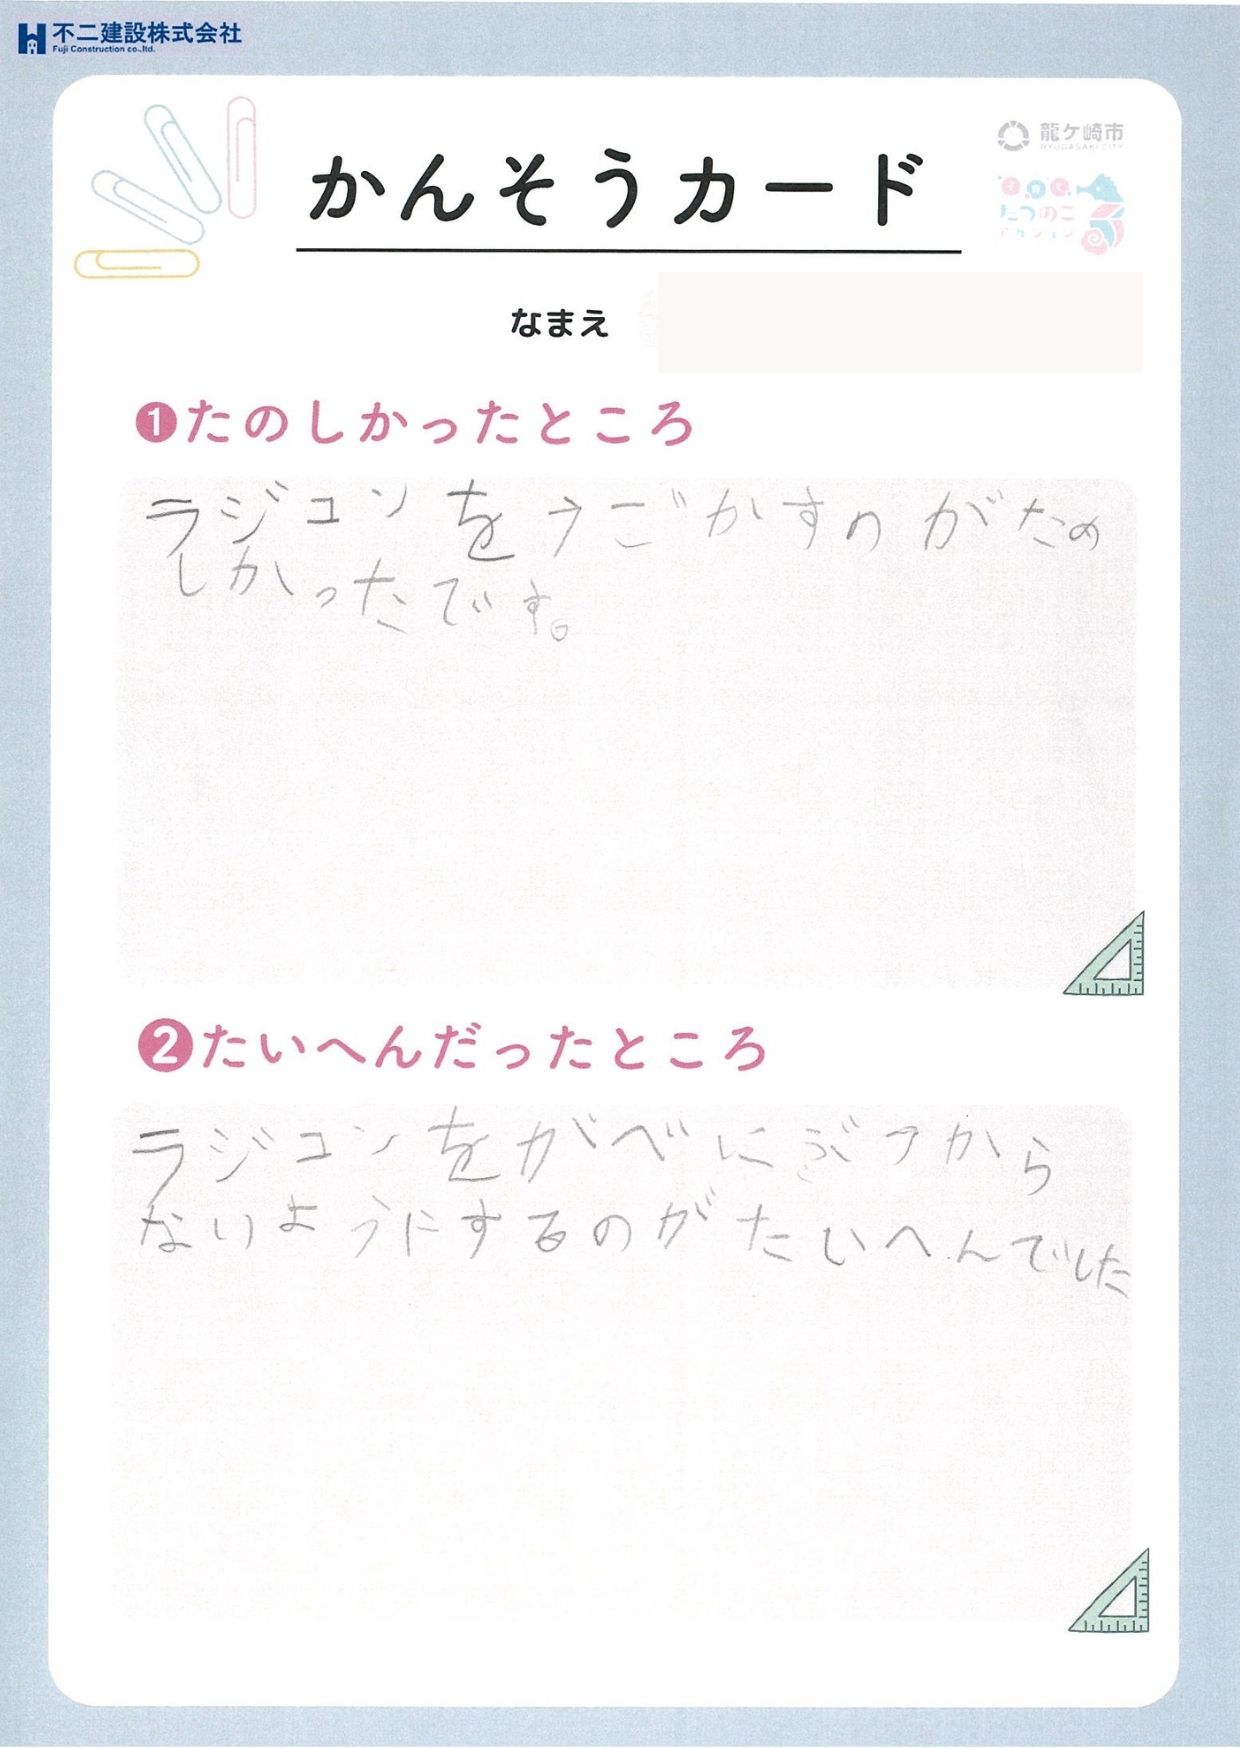 不二建設株式会社
Fuji Construction co.,ltd.
龍ケ崎市
RYUGASAKI CITY
かんそうカード
子育て
たつのこ
アクション
なまえ
❶たのしかったところ
ラジコンをうごかすのがたの
しかったです。
❷たいへんだったところ
ラジコンをがべにぶつから
ないようにするのがたいへんでした